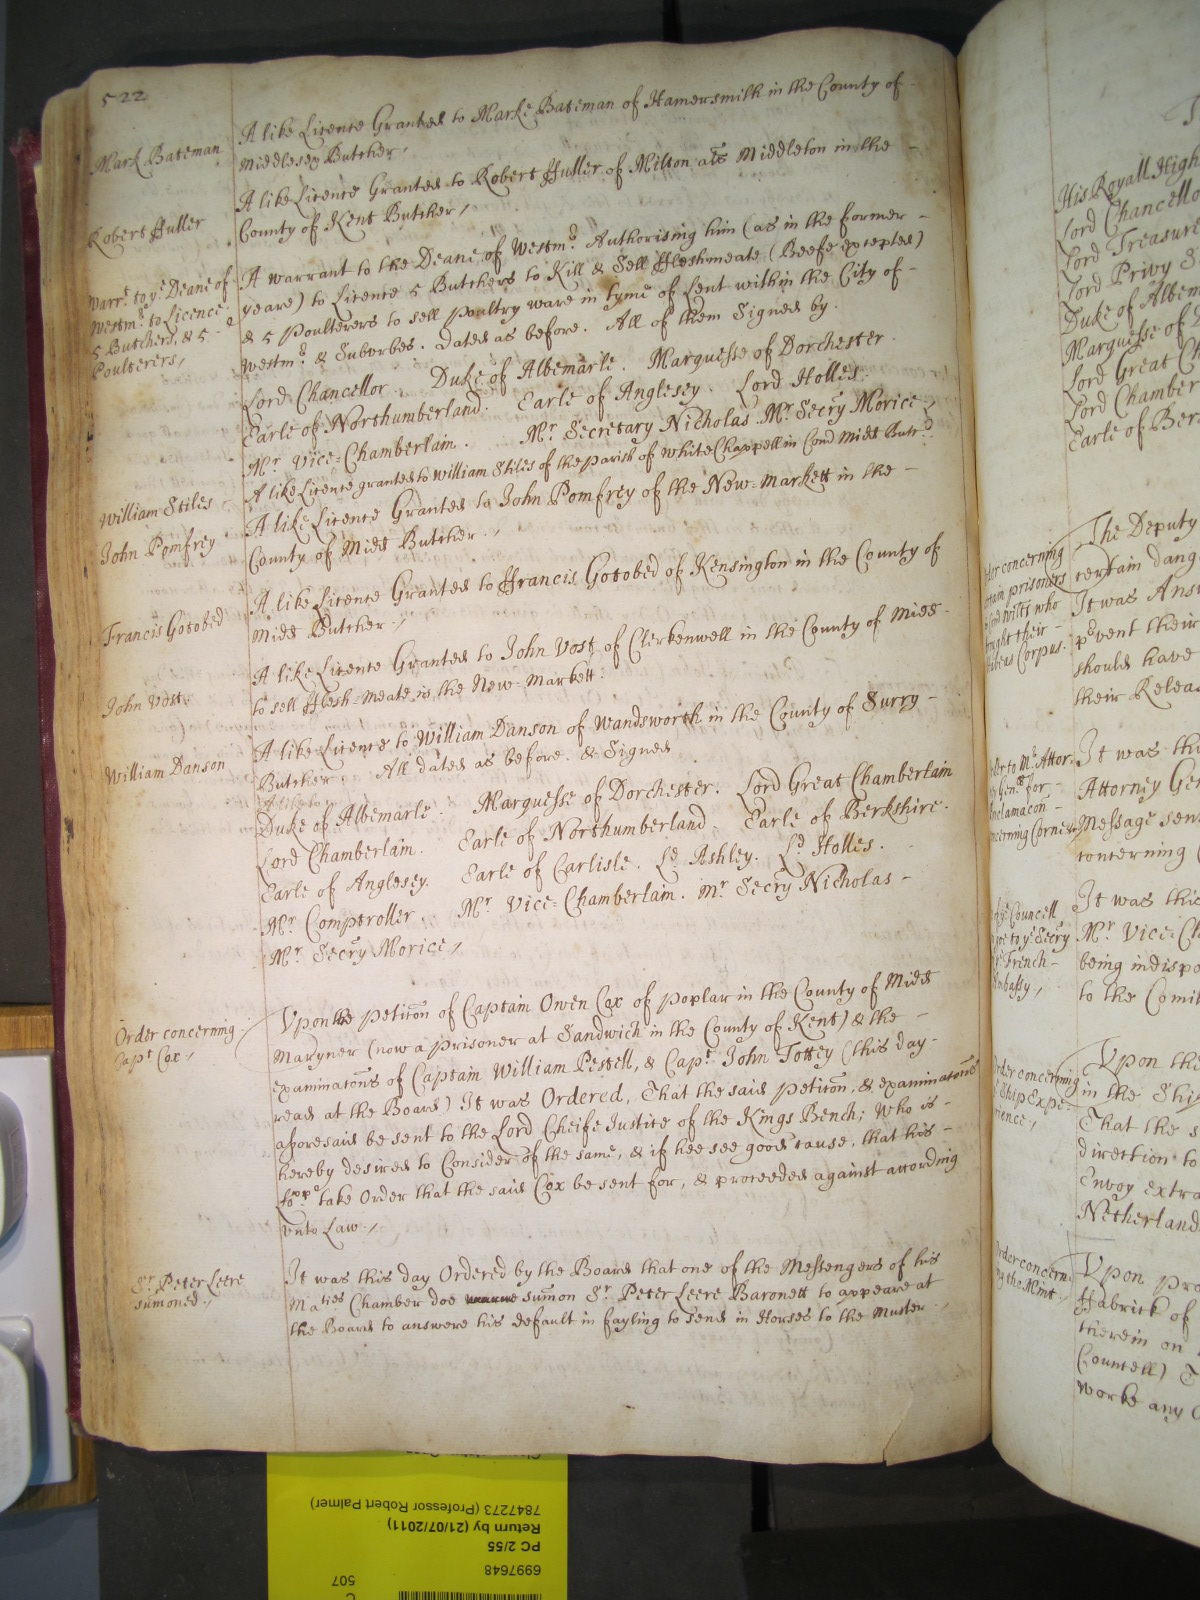 522
Mark Bateman
A like Licence Granted to Marke Bateman of Hamersmith in the County of -
Middlesex Butcher /
Robert ffuller
A like Licence Granted to Robert ffuller of Milton als Middleton in the -
County of Kent Butcher /
Warrt to ye Deane of
Westmr to Licence
5 Butchers, & 5 -
Poulterers /
A warrant to the Deane of Westmr Authorising him (as in the former -
yeare) to Licence 5 Butchers to Kill & Sell fflesh meate (Beefe excepted)
& 5 Poulterers to sell Poultry ware in tyme of Lent within the City of -
Westmr & Suburbes. Dated as before. All of them Signed by.
Lord Chancellor. Duke of Albemarle. Marquesse of Dorchester
Earle of Northumberland. Earle of Anglesey. Lord Holles.
Mr Vice=Chamberlain. Mr Secretary Nicholas. Mr Secry Morice /
William Stiles
A like Licence granted to William Stiles of the parish of White Chappell in Com Midd Butr
John Pomfrey
A like Licence Granted to John Pomfrey of the New=Markett in the -
County of Midd Butcher. /
Francis Gotobed
A like Licence Granted to ffrancis Gotobed of Kensington in the County of
Midd Butcher /
John Vost.
A like Licence Granted to John Vost of Clerkenwell in the County of Midd -
to sell fflesh=meate in the New=Markett.
William Danson
A like Licence to William Danson of Wandsworth in the County of Surry -
Butcher. All dated as before. & Signed
Duke of Albemarle. Marquesse of Dorchester. Lord Great Chamberlain
Lord Chamberlain. Earle of Northumberland. Earle of Berkshire.
Earle of Anglesey. Earle of Carlisle. Ld Ashley. Ld Holles.
Mr Comptroller. Mr Vice=Chamberlain. Mr Secry Nicholas -
Mr Secry Morice /
Order concerning
Capt Cox /
Upon the Peticon of Captain Owen Cox of Poplar in the County of Midd
Maryner (now a prisoner at Sandwich in the County of Kent) & the -
examinacons of Captain William Pestell, & Capt John Tottey (this day -
read at the Board) It was Ordered, That the said peticon, & examinacons
aforesaid be sent to the Lord Cheife Justice of the Kings Bench; Who is -
hereby desired to Consider of the same, & if hee see good cause, that his -
Lopp take Order that the said Cox be sent for, & proceeded against according
unto Law. /
Sr Peter Leere
sumoned /
It was this day Ordered by the Board that one of the Messengers of his
Maties Chamber doe sumon Sr Peter Leere Baronett to appeare at
the Board to answere his default in fayling to send in Horses to the Muster /
His Royall High
Lord Chancello
Lord Treasure
Lord Privy S
Duke of Albem
Marquesse of
Lord Great Ch
Lord Chamber
Earle of Ber
concerning
prisoners
Wilts who
their -
Corpus.
The Deputy
certain dang
It was Answ
pvent their
should have
their Relea
to Mr Attor.
Genll for -
clamacon -
It was th
Attorney Gen
Message sen
concerning
Councell
to ye Secry
French -
mbassy /
It was this
Mr Vice=Ch
being indispo
to the Comit
Order concerning
Ship Expe-
rience /
Upon the
in the Shi
That the s
direction to
Envoy extra
Netherland
Order concern-
ing the Mint
Upon pro
ffabrick of
therein on
Councell) T
worke any
507
6997648
PC 2/55
Return by (21/07/2011)
7847273 (Professor Robert Palmer)